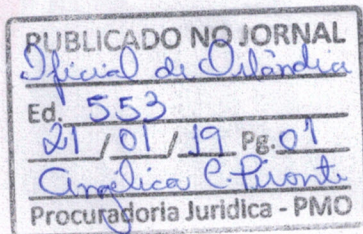 PUBLICADO NO JORNAL
Oficial de Orlândia
Ed. 553
21 / 01 / 19 Pg. 01
Angélica C. Pironti
Procuradoria Juridica - PMO